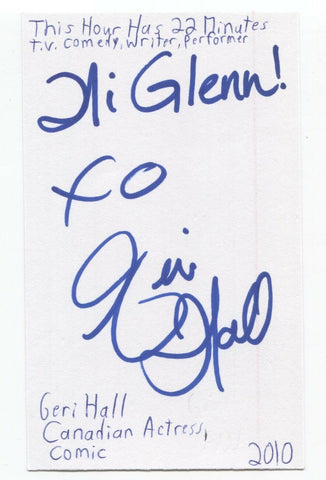 This Hour Has 22 Minutes
T.V. comedy, writer, performer
Hi Glenn!
XO
Geri
Hall
Geri Hall
Canadian Actress,
Comic
2010